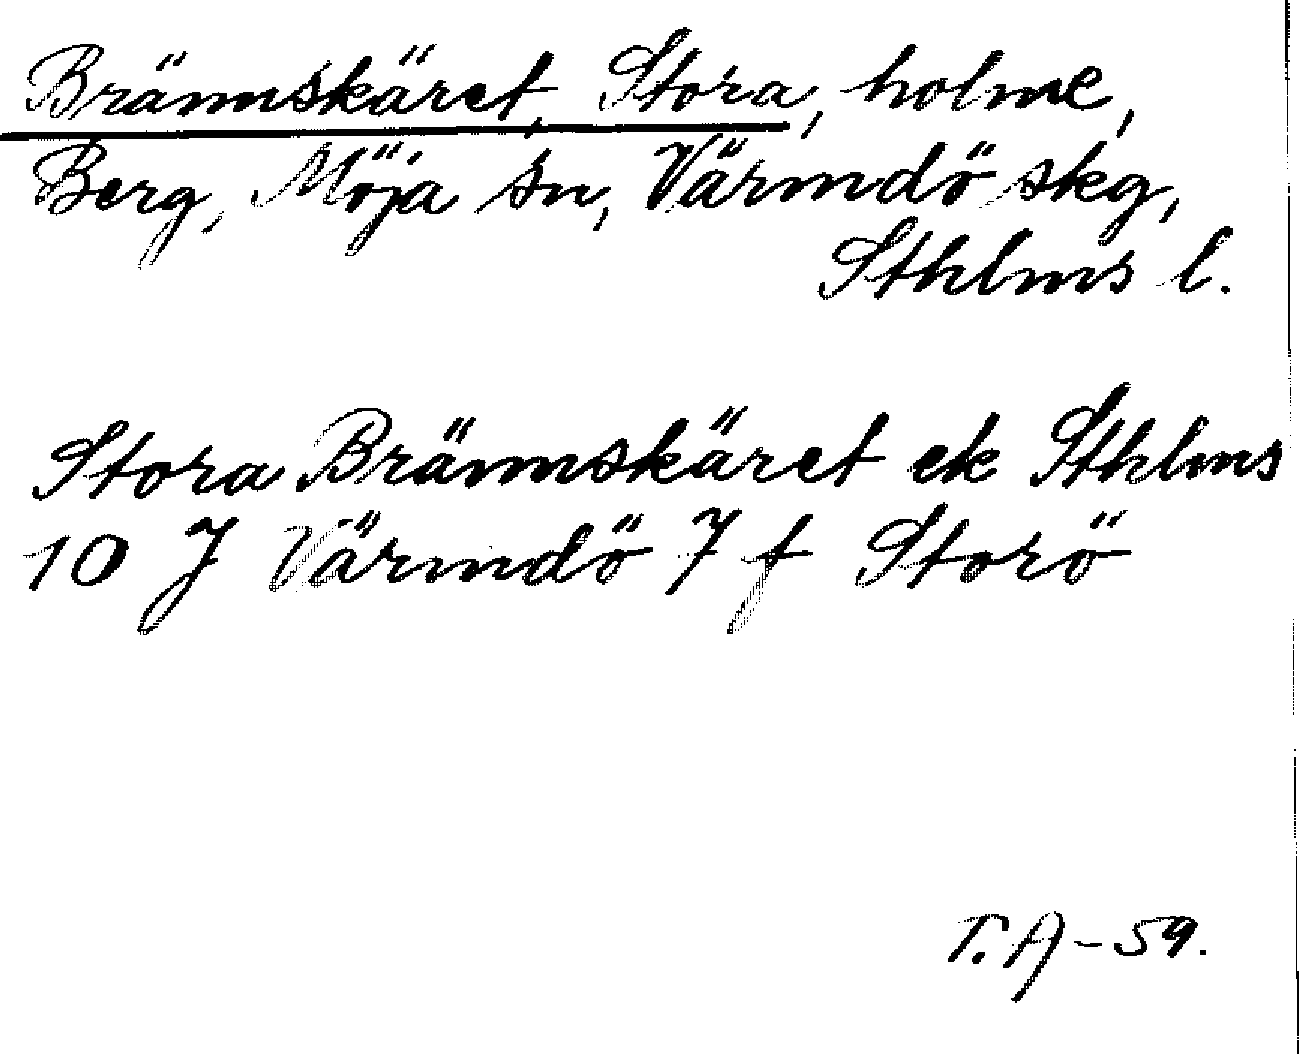 Brännskäret, Stora, holme,
Berg, Möja sn, Värmdö skg,
Sthlms l.
Stora Brännskäret ek Sthlms
10 J Värmdö 7 f Storö
T.A-59.